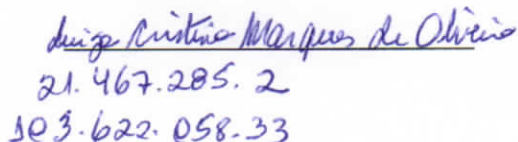 Luiza Cristina Marques de Oliveira
21.467.285.2
103.622.058-33